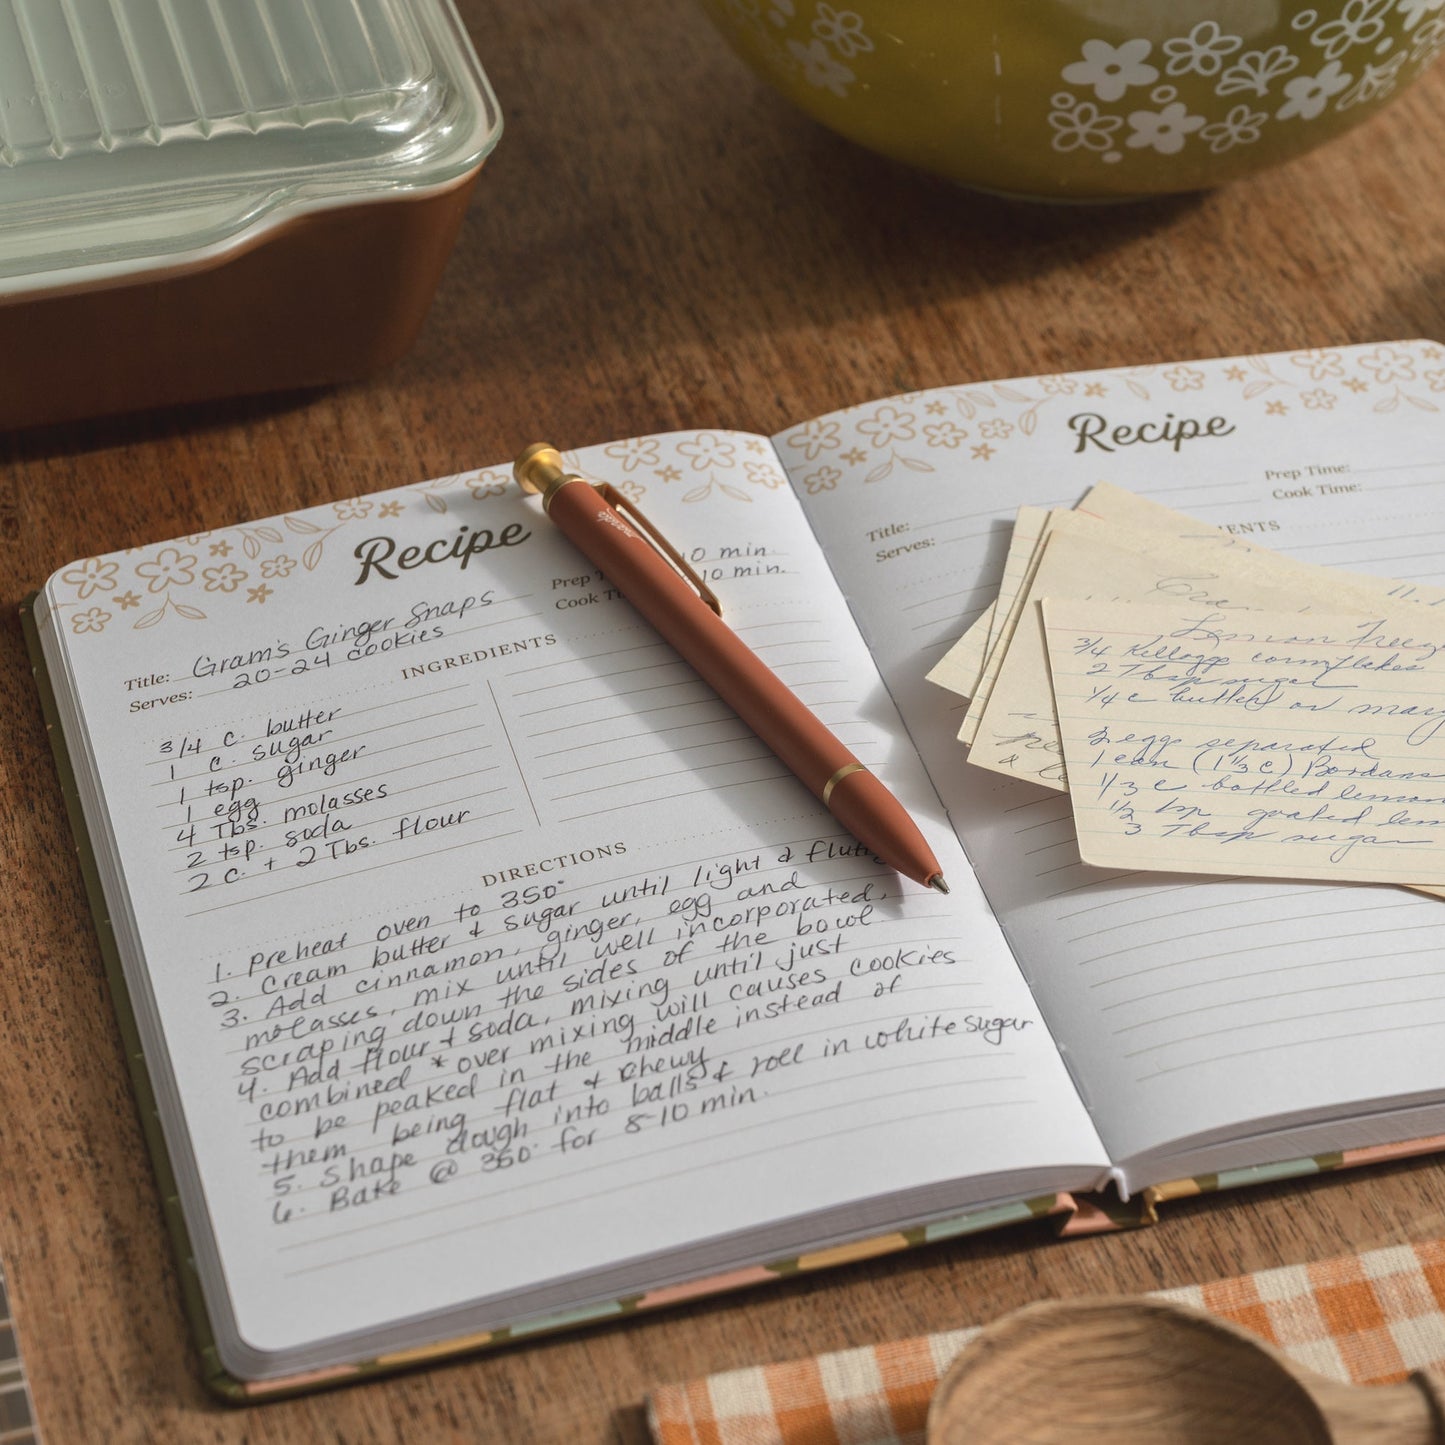 Recipe
Prep T 10 min.
Cook Ti 10 min.
Title: Gram's Ginger Snaps
Serves: 20-24 cookies
INGREDIENTS
3/4 c. butter
1 c. sugar
1 tsp. ginger
1 egg
4 Tbs. molasses
2 tsp. soda
2 c. + 2 Tbs. flour
DIRECTIONS
1. preheat oven to 350°
2. cream butter & sugar until light & fluffy
3. Add cinnamon, ginger, egg and
molasses, mix until well incorporated,
scraping down the sides of the bowl
4. Add flour & soda, mixing until just
combined * over mixing will causes cookies
to be peaked in the middle instead of
them being flat & chewy
5. Shape dough into balls & roll in white sugar
6. Bake @ 350° for 8-10 min.
Recipe
Prep Time:
Cook Time:
Title:
Serves:
IENTS
Lemon Freeze
3/4 Kelloggs cornflakes
2 Tbsp sugar
1/4 c butter or marg
2 eggs separated
1 can (1 1/3 c) Bordans
1/3 c bottled lemon
1/2 tsp grated lem
3 Tbsp sugar
PYREX